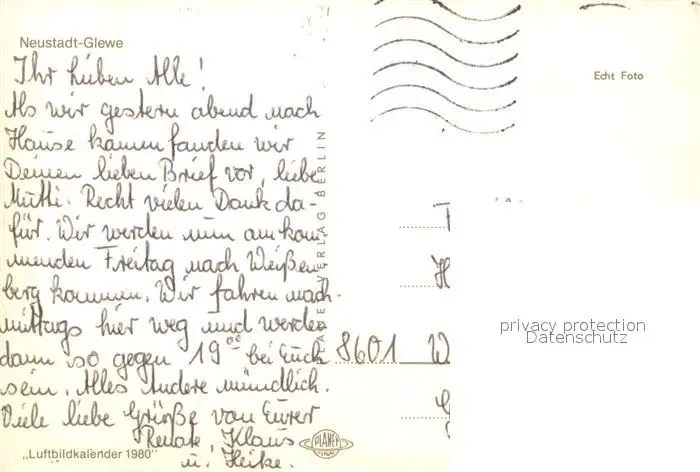 Neustadt-Glewe
Echt Foto
Ihr lieben Alle!
Als wir gestern abend nach
Hause kamen fanden wir
Deinen lieben Brief vor, liebe
Mutti. Recht vielen Dank da-
für. Wir werden nun am kom-
menden Freitag nach Weißen-
berg kommen. Wir fahren nach-
mittags hier weg und werden
dann so gegen 19⁰⁰ bei Euch
sein. Alles Andere mündlich.
Viele liebe Grüße von Eurer
Renate, Klaus
u. Heike.
"Luftbildkalender 1980"
VERLAG BERLIN
PLANET
8601 W
privacy protection
Datenschutz